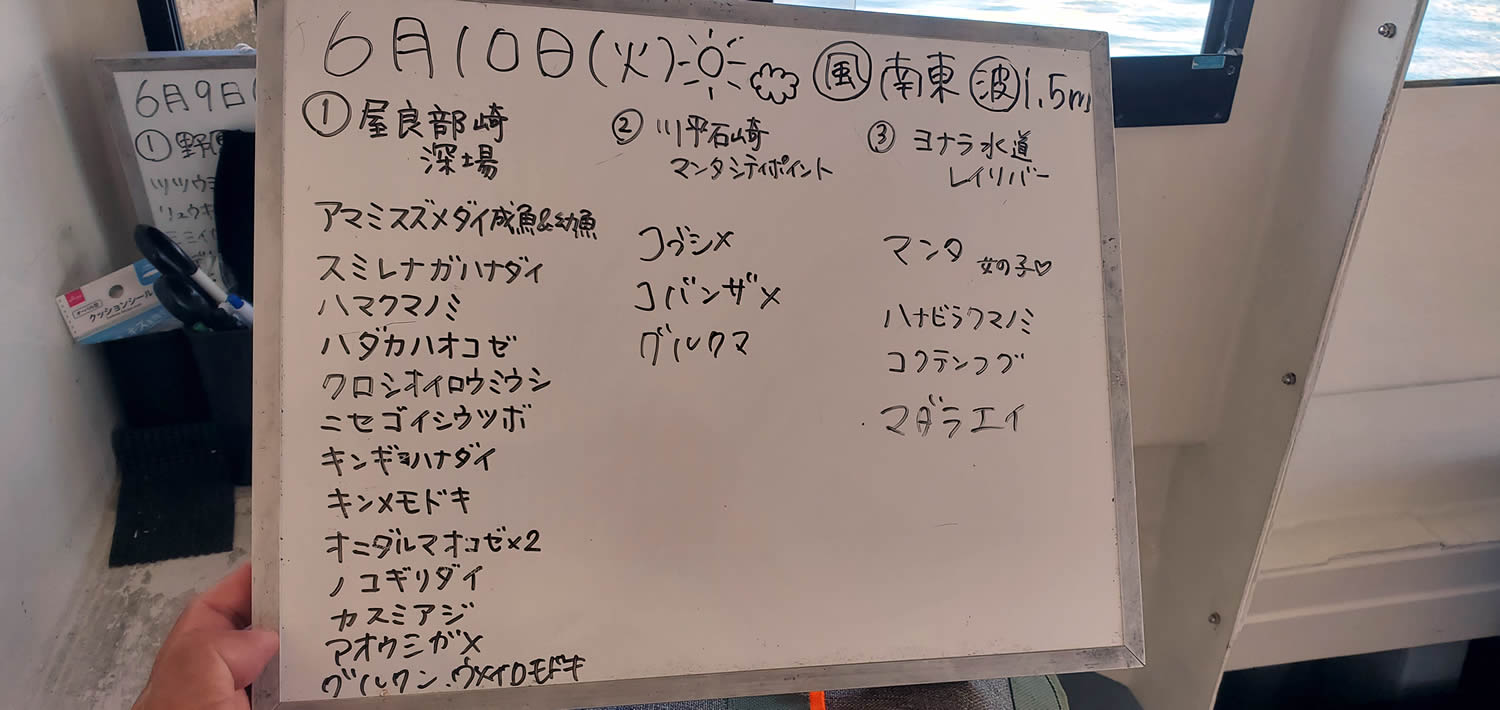 6月10日(火) 風 南東 波 1.5m
① 屋良部崎
深場
アマミスズメダイ成魚&幼魚
スミレナガハナダイ
ハマクマノミ
ハダカハオコゼ
クロシオイロウミウシ
ニセゴイシウツボ
キンギョハナダイ
キンメモドキ
オニダルマオコゼ×2
ノコギリダイ
カスミアジ
アオウミガメ
グルクン、ウメイロモドキ
② 川平石崎
マンタシティポイント
コブシメ
コバンザメ
グルクマ
③ ヨナラ水道
レイリバー
マンタ 女の子♡
ハナビラクマノミ
コクテンフグ
マダラエイ
6月9日(
①
ツツウミ
リュウキ
クッションシール